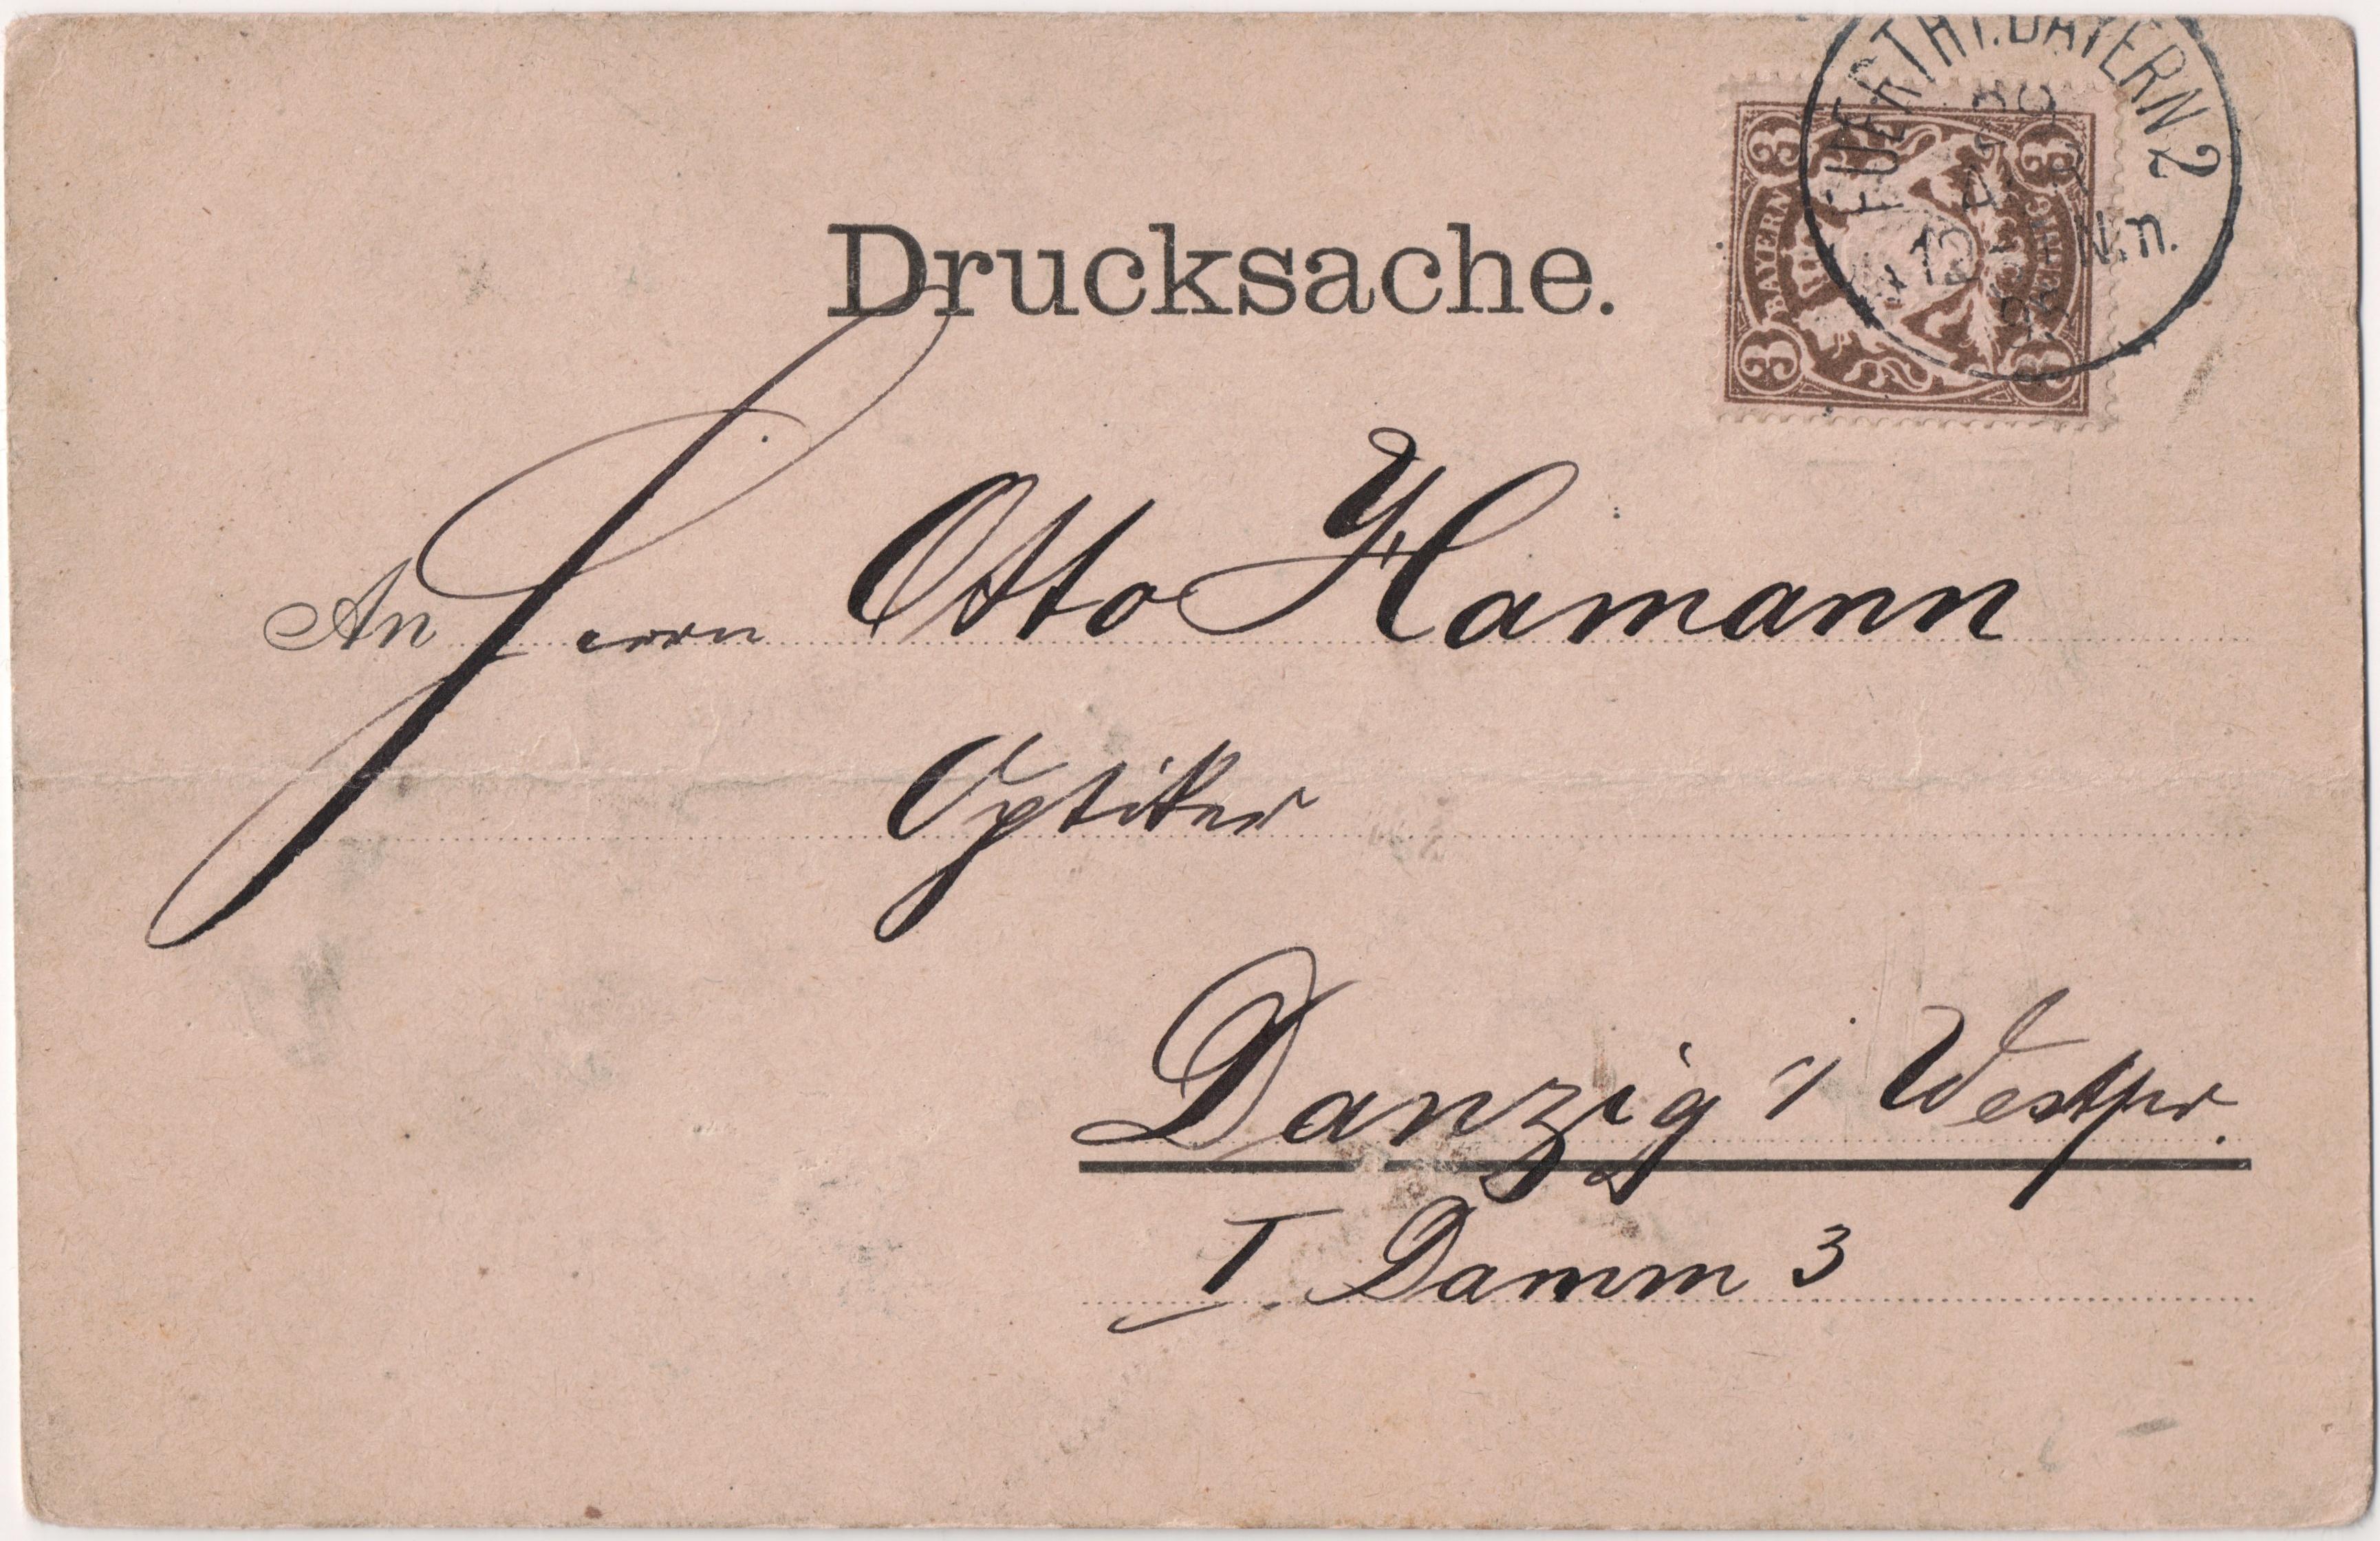 FUERTH I. BAYERN 2
N.n.
3 3
BAYERN
3 3
Drucksache.
An Herrn Otto Hamann
Optiker
Danzig i/ Westpr.
I. Damm 3